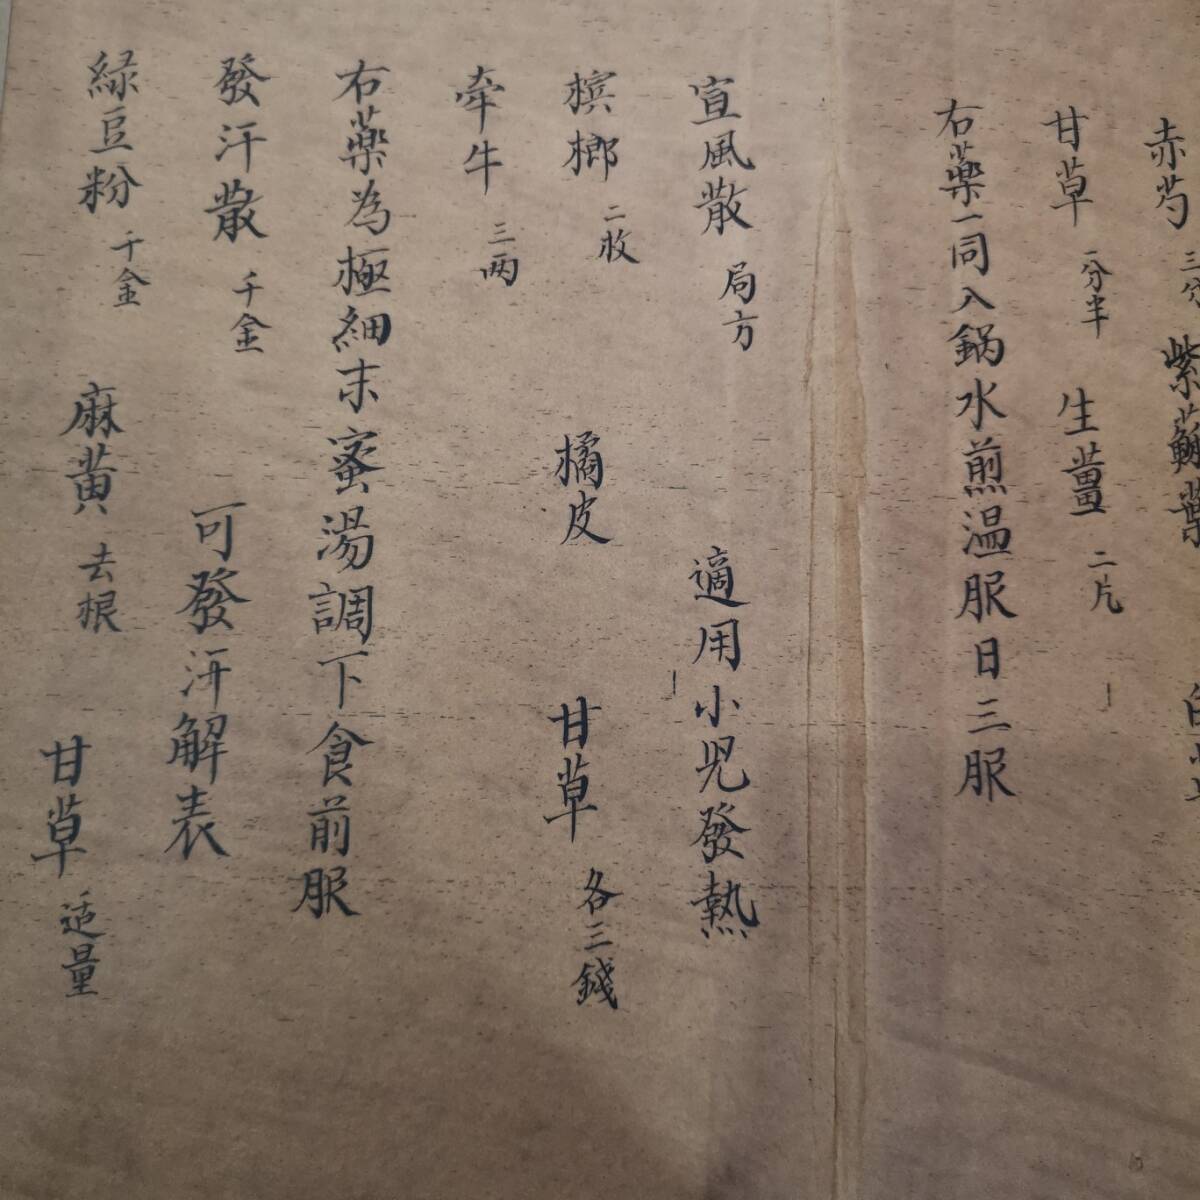 赤芍 三分 紫蘇葉
甘草 一分半 生薑 二片
右藥一同入鍋水煎温服日三服
宣風散 局方 適用小児發熱
檳榔 二枚 橘皮 甘草 各三錢
牽牛 三两
右藥為極細末蜜湯調下食前服
發汗散 千金 可發汗解表
緑豆粉 千金 麻黄 去根 甘草 适量